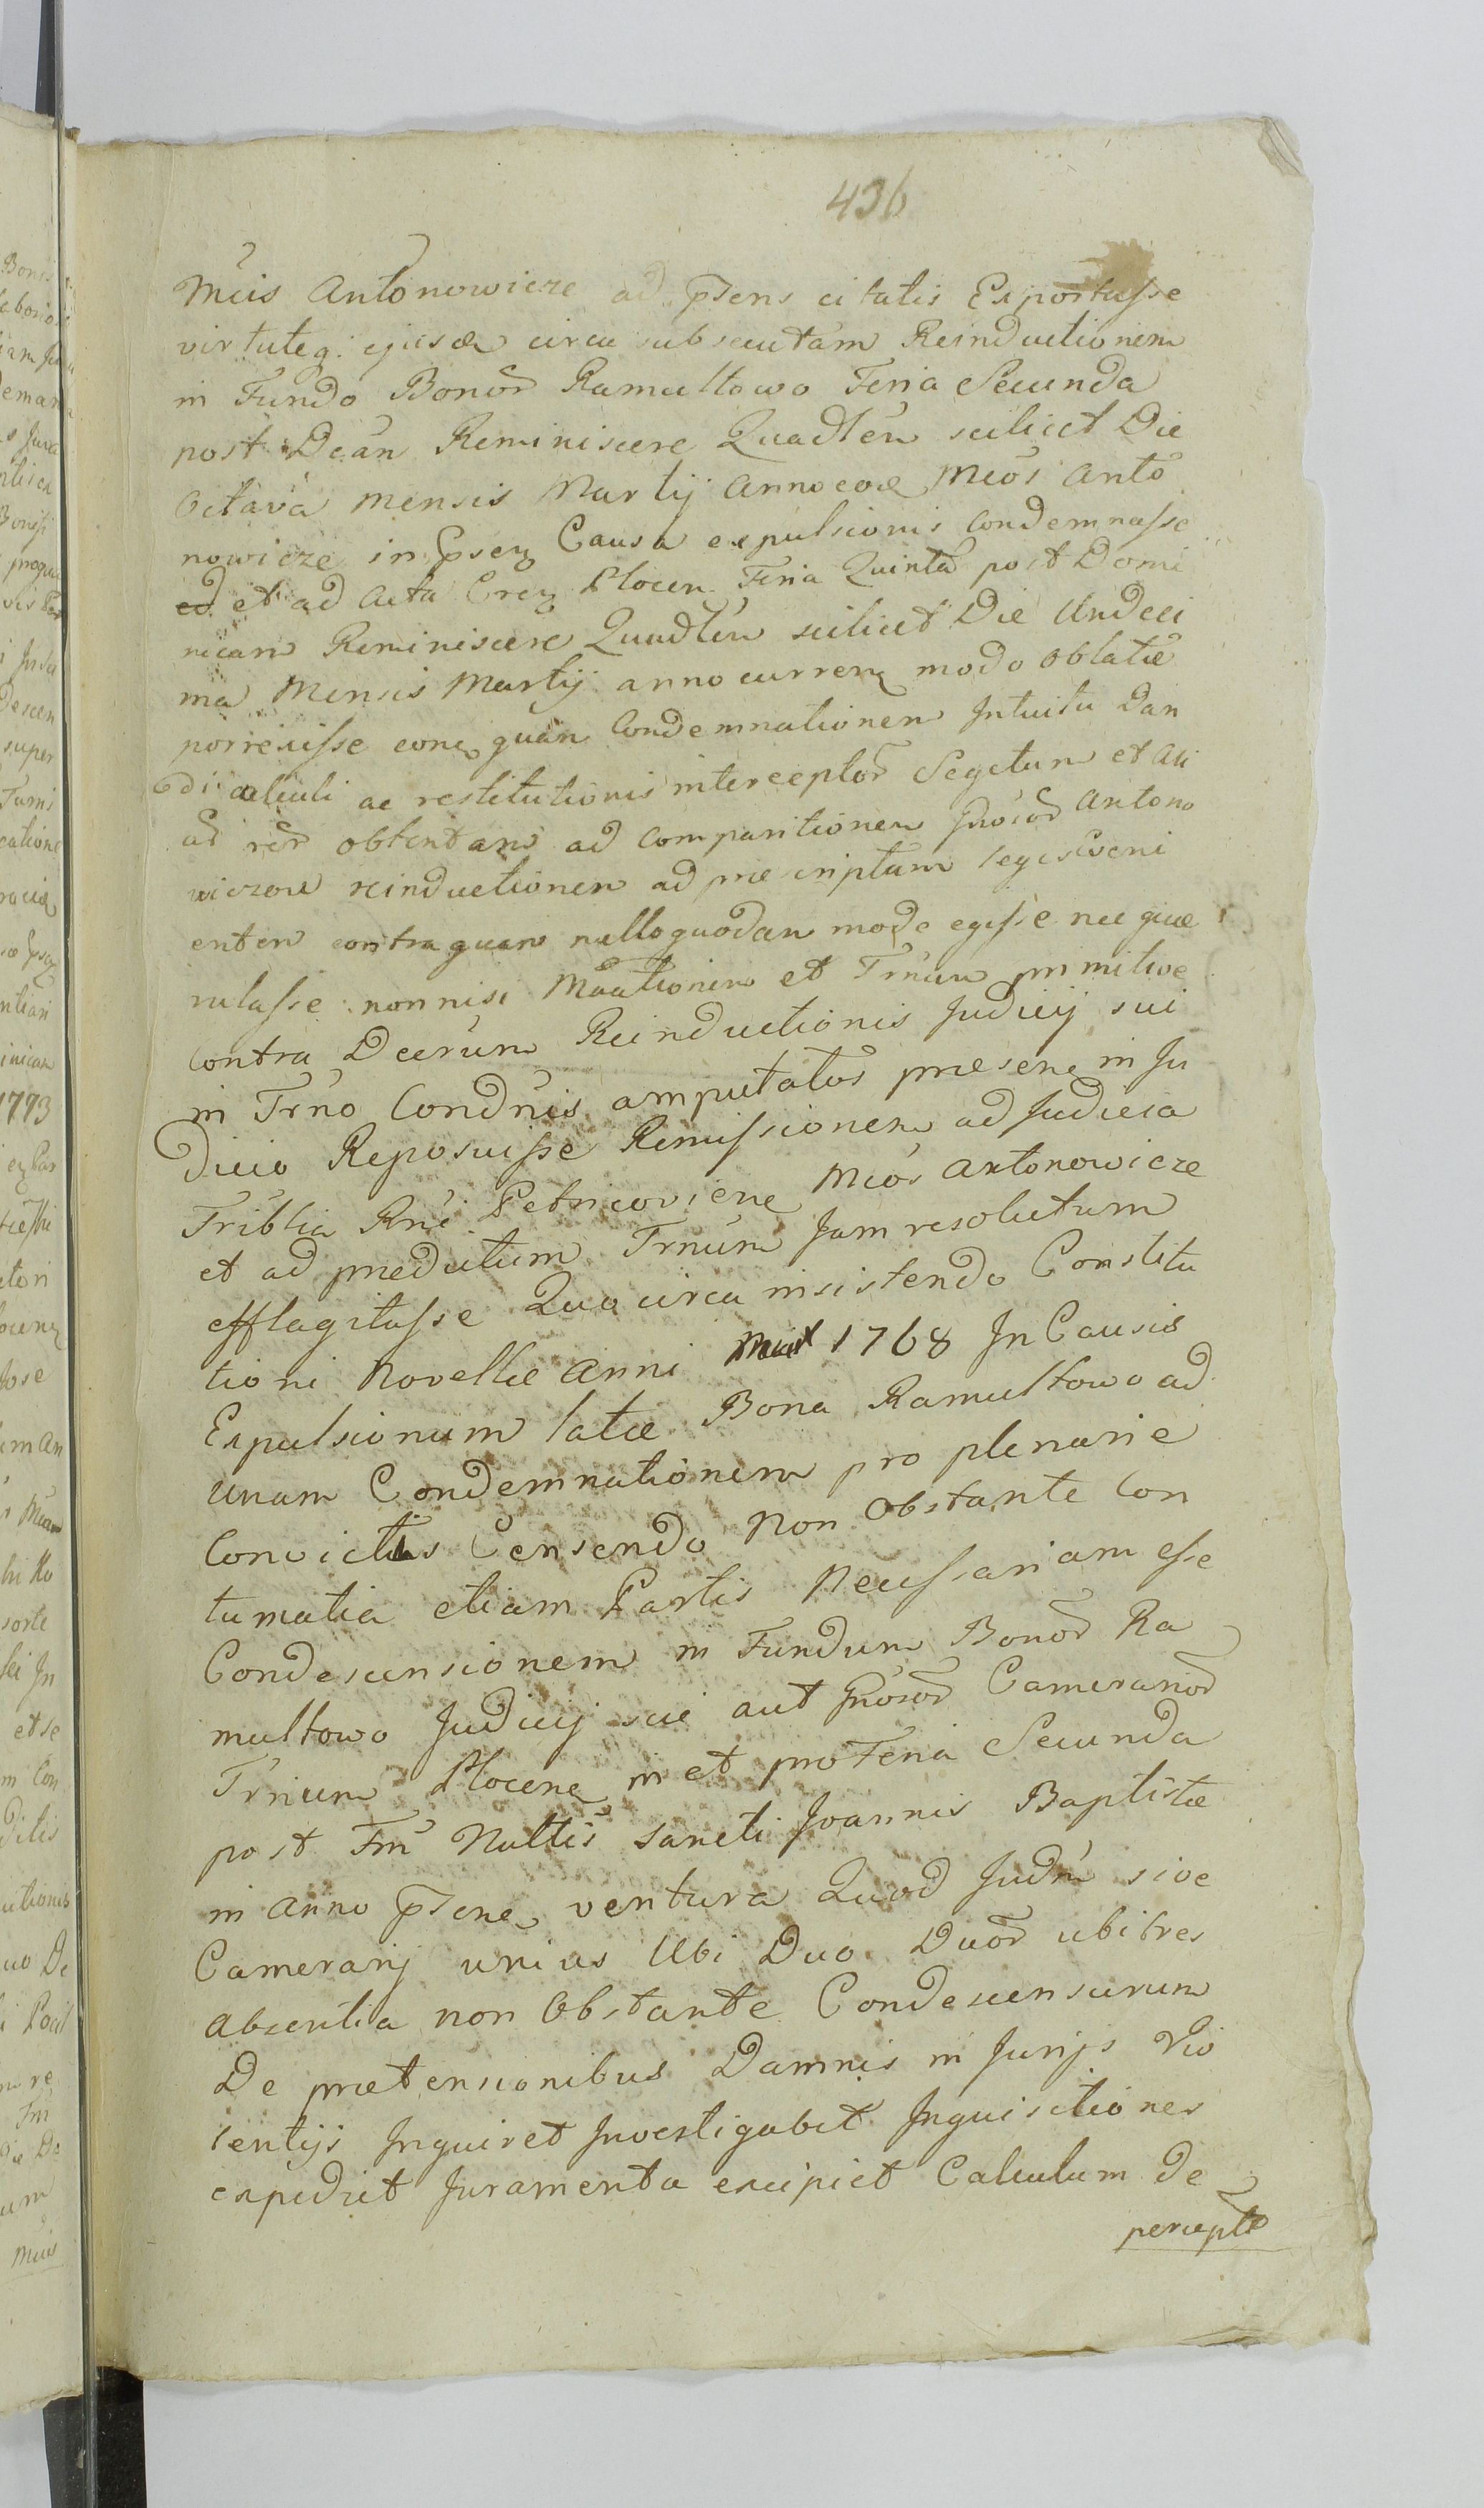 436
Mcis Antonowicze ad pñsens citatis Exportasse
virtuteq. ejusdæ circa subsecutam Reinductionem
in Fundo Bonor̃ Ramultowo Feria Secunda
post Dcãn Reminiscere Quadłen scilicet Die
Octava Mensis Martij Anno eoæ Mcos Anto
nowicze in Causa expulsionis Condemnasse
et ad Acta Plocen Feria Quinta post Domi
nicam Reminiscere Quadłen scilicet Die Undeci
ma Mensis Martij anno curren modo oblatæ
porrexisse Condemnationem Intuitu Dan
di calculi ac restitutionis interceptor̃ Segetum et ali
ar̃ rer̃ obtentam ad comparitionem Gñosor̃ Antono
wiczow reinductionem ad præscriptum legis
enten contra quam nulloquodam modo egisse nec quæ
rulasse nonnisi Mõationem et Trnũm primitive
contra Decrum Reinductionis Judicij sui
in Trno Condñis amputatos præsen in Ju
dicio Reposuisse Remissionem ad Judicia
Triblia Rni Petricoviene Mcos Antonowicze
et ad prædictum Trnũm Jam resolutum
efflagitasse Quocirca insistendo Constitu
tioni Novellæ Anni 1768 In Causis
Expulsionum latæ Bona Ramultowo ad
unam Condemnationem pro plenarie
Convictis Censendo Non Obstante Con
tumatia etiam Partis Necessariam esse
Condescensionem in Fundum Bonor̃ Ra
multowo Judicij sui aut Gñosor̃ Camerarior̃
Trrium Plocene in et pro Feria Secunda
post Fm̃ Nattis Sancti Joannis Baptistæ
in Anno pñsene ventura Quod Judm̃ sive
Camerarij unius Ubi Duo Duor̃ ubi tres
absentia non Obstante Condescensurum
De prætensionibus Damnis in Jurijs Vio
lentijs Inquiret Investigabit Inquisitiones
expediet Juramenta excipiet Calculum de
percepto